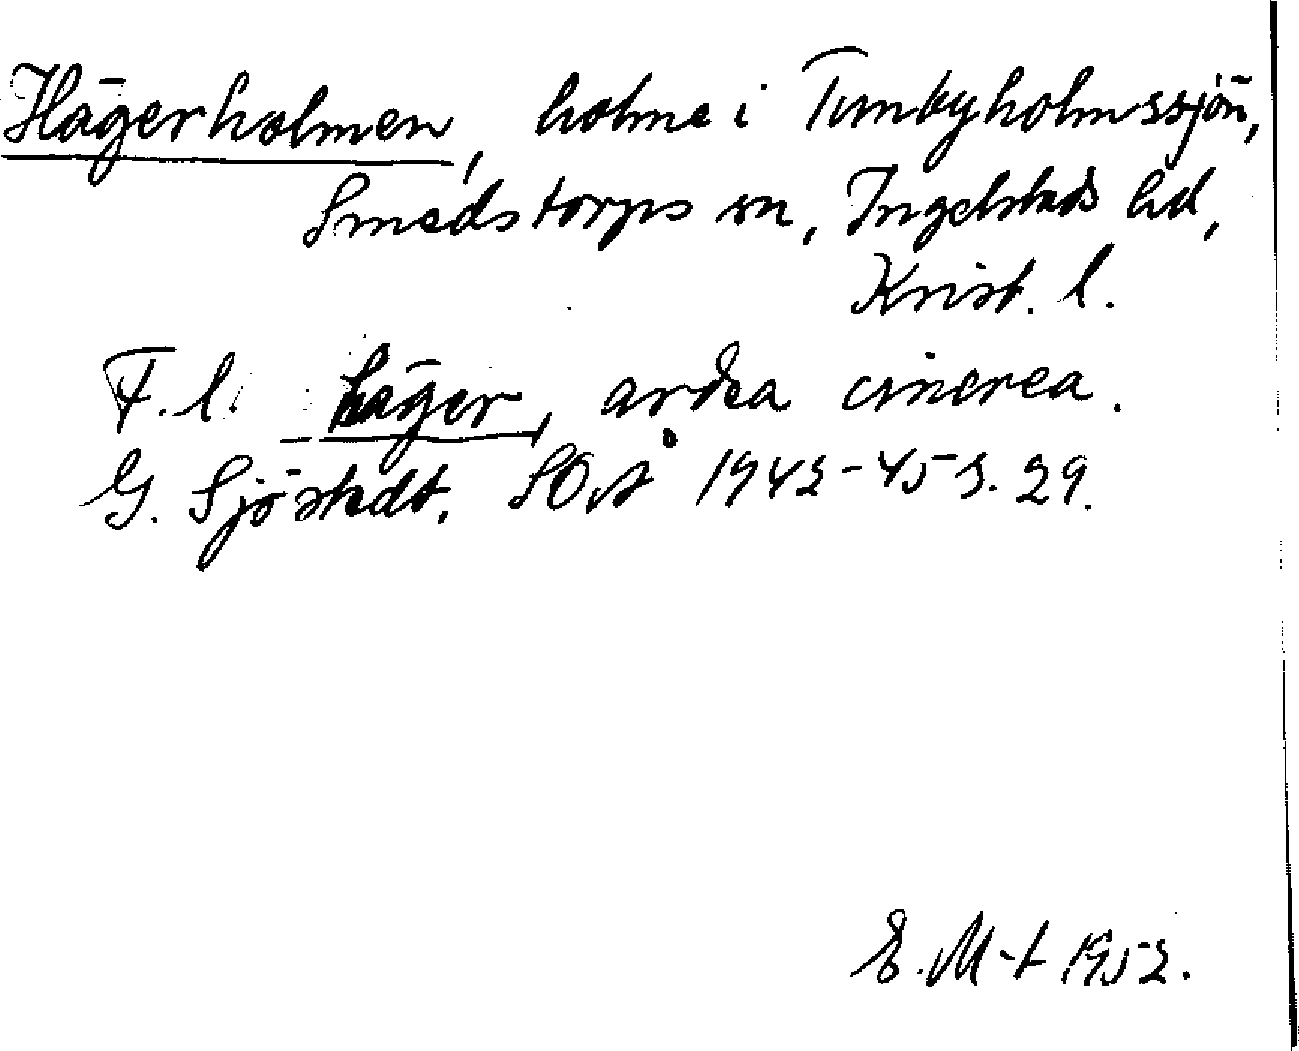 Hägerholmen, holme i Tunbyholmssjön,
Smedstorps sn, Ingelstads hd,
Krist. l.
F.l. häger, ardea cinerea.
G. Sjöstedt, SOÅ 1942-45 s. 29.
E. M-t 1952.